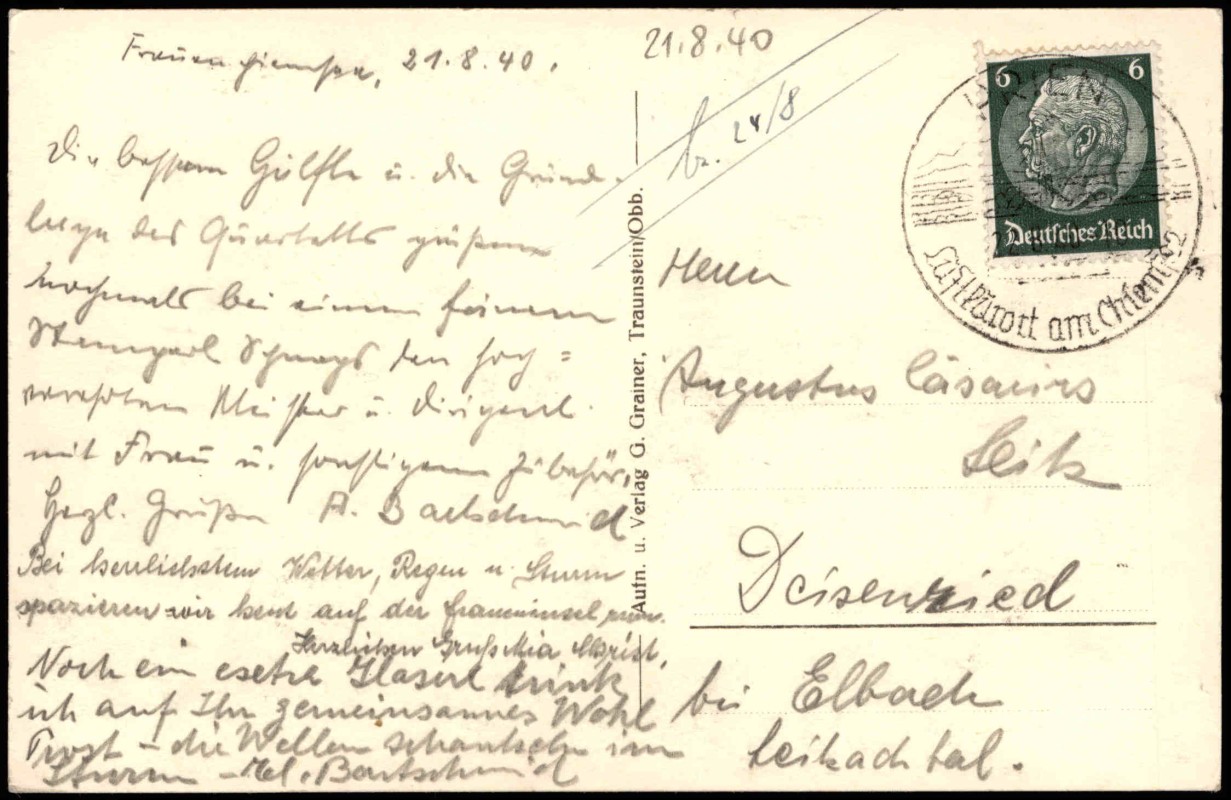 Frauenchiemsee, 21.8.40.
Die bessere Hälfte u. die Grund-
lage des Quartetts grüßen
nochmals bei einem feinen
Stamperl Schnaps den hoch=
verehrten Meister u. Dirigent
mit Frau u. sonstigem Zubehör.
Herzl. Grüße A. Bartschmid
Bei herrlichstem Wetter, Regen u. Sturm
spazieren wir heut auf der Fraueninsel rum.
Herzlichen Gruß Mia
Noch ein extra Glaserl trink
ich auf Ihr gemeinsames Wohl
Prost – die Wellen schautscheln im
Sturm – Mel. Bartschmid
Aufn. u. Verlag G. Grainer, Traunstein/Obb.
21.8.40
bz. 24/8
6 6
Deutsches Reich
PRIEN
Luftkurort am Chiemsee
Herrn
Augustus Cäsarius
Seitz
Deisenried
bei Elbach
Leitzachtal.